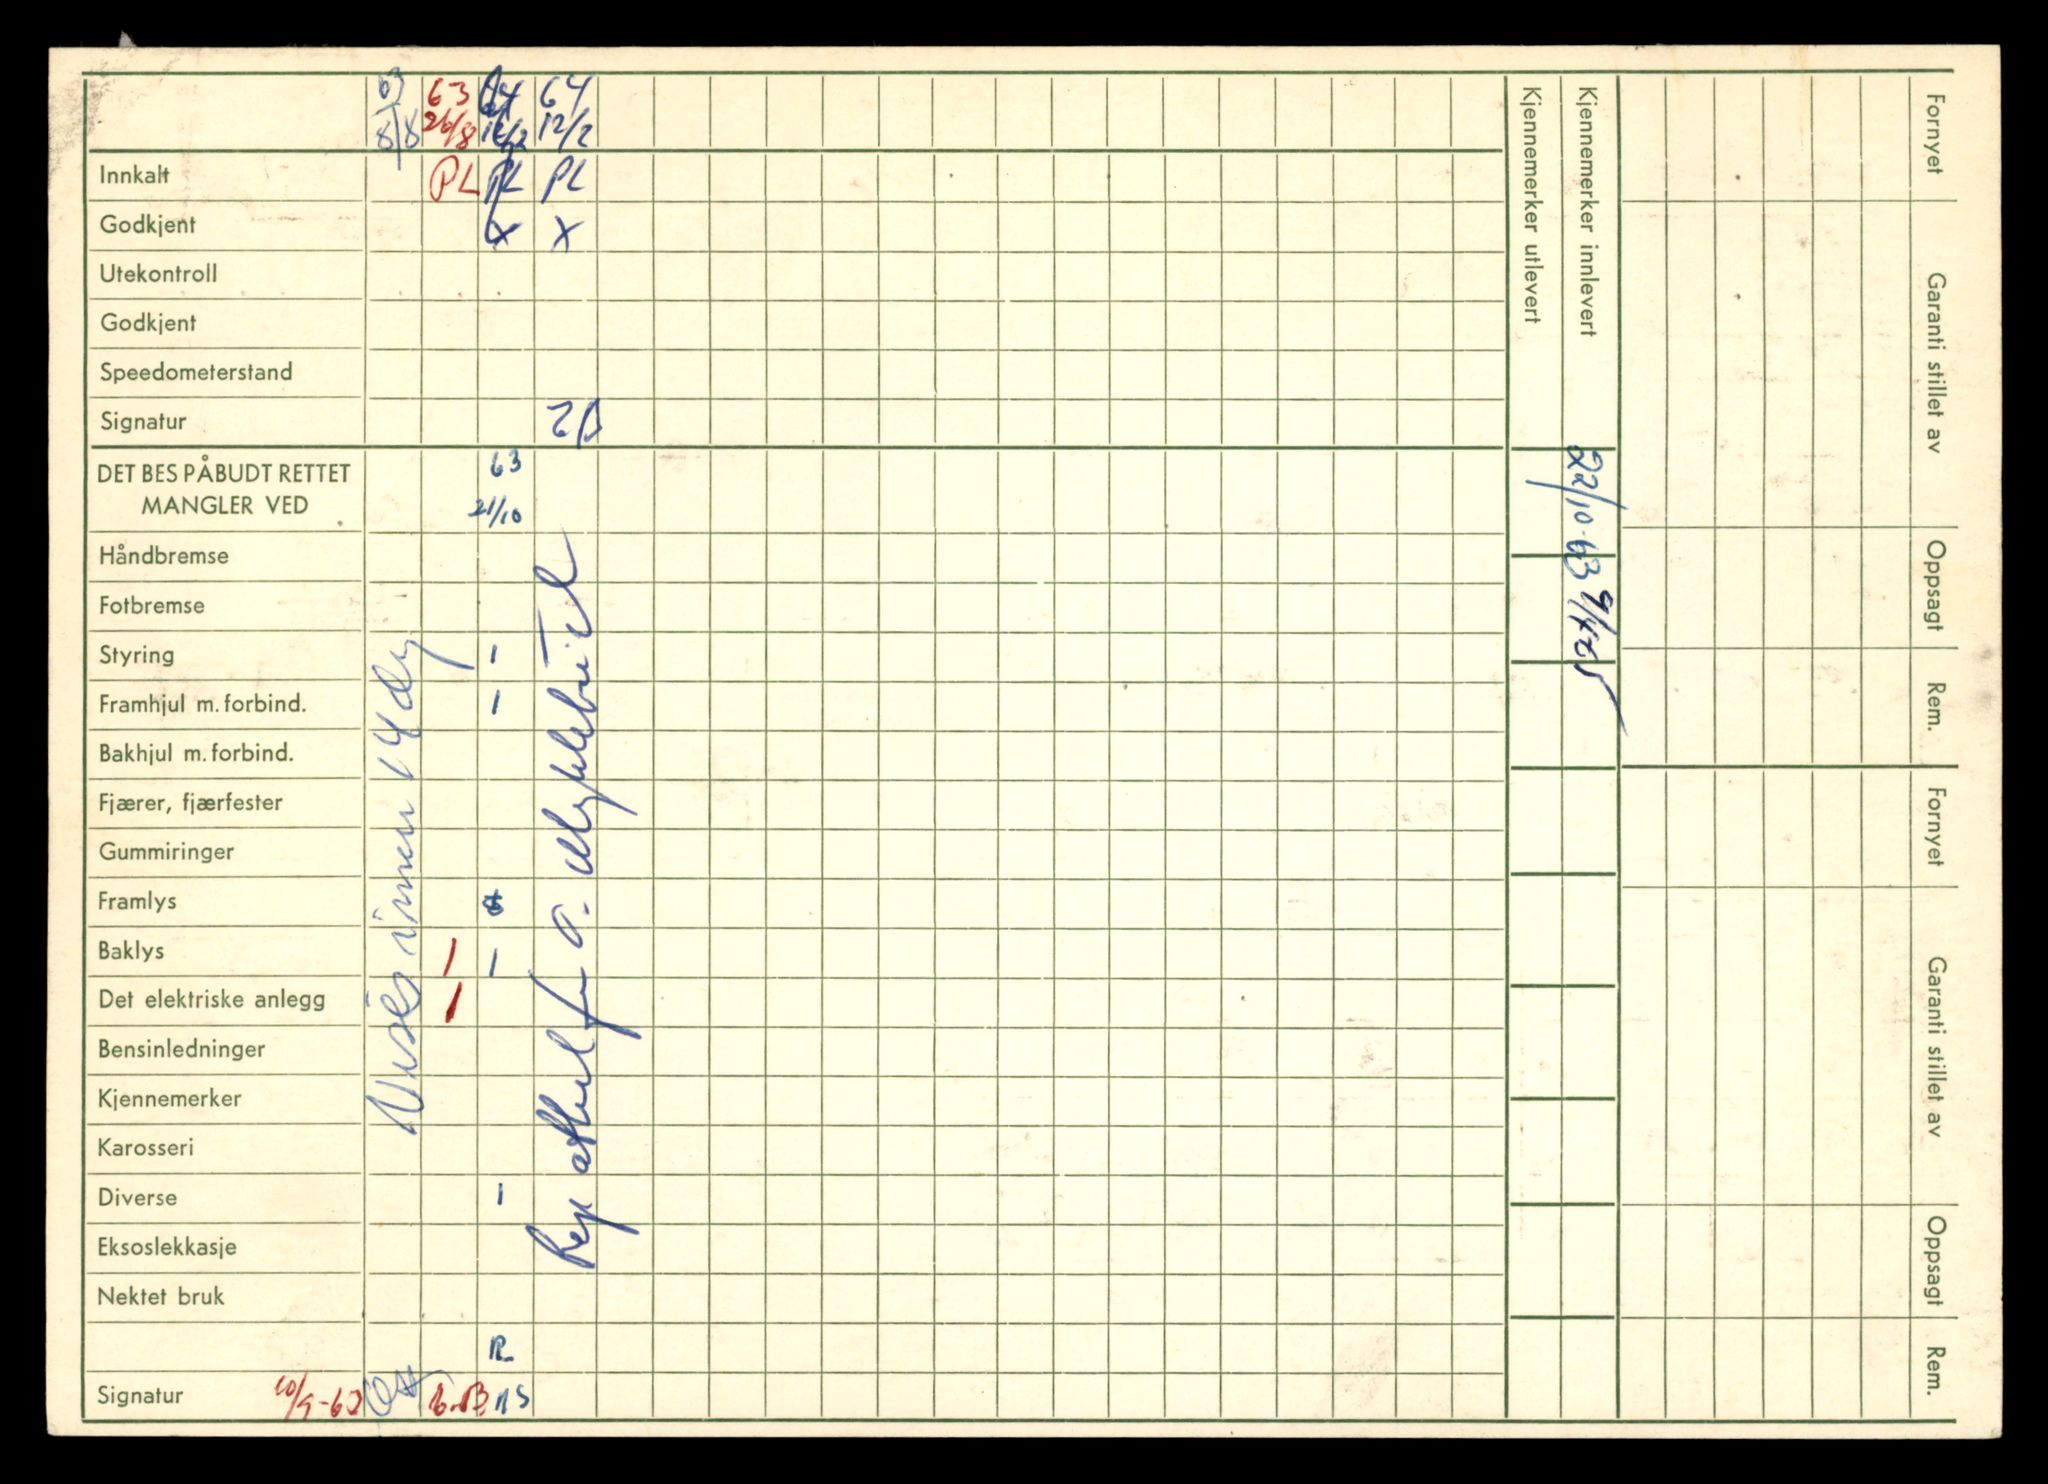 63 63 64 64
8/8 26/8 12/2 12/2
Innkalt PL PL PL
Godkjent x x
Utekontroll
Godkjent
Speedometerstand
Signatur
DET BES PÅBUDT RETTET 63
MANGLER VED 21/10
Håndbremse
Fotbremse
Styring 1
Framhjul m. forbind. 1
Bakhjul m. forbind.
Fjærer, fjærfester
Gummiringer
Framlys
Baklys 1 1
Det elektriske anlegg 1
Bensinledninger
Kjennemerker
Karosseri
Diverse 1
Eksoslekkasje
Nektet bruk
R
Signatur
Vises innen 14 dg
Rep attest fra
Kjennemerker utlevert
Kjennemerker innlevert
22/10-63
Fornyet
Garanti stillet av
Oppsagt
Rem.
Fornyet
Garanti stillet av
Oppsagt
Rem.